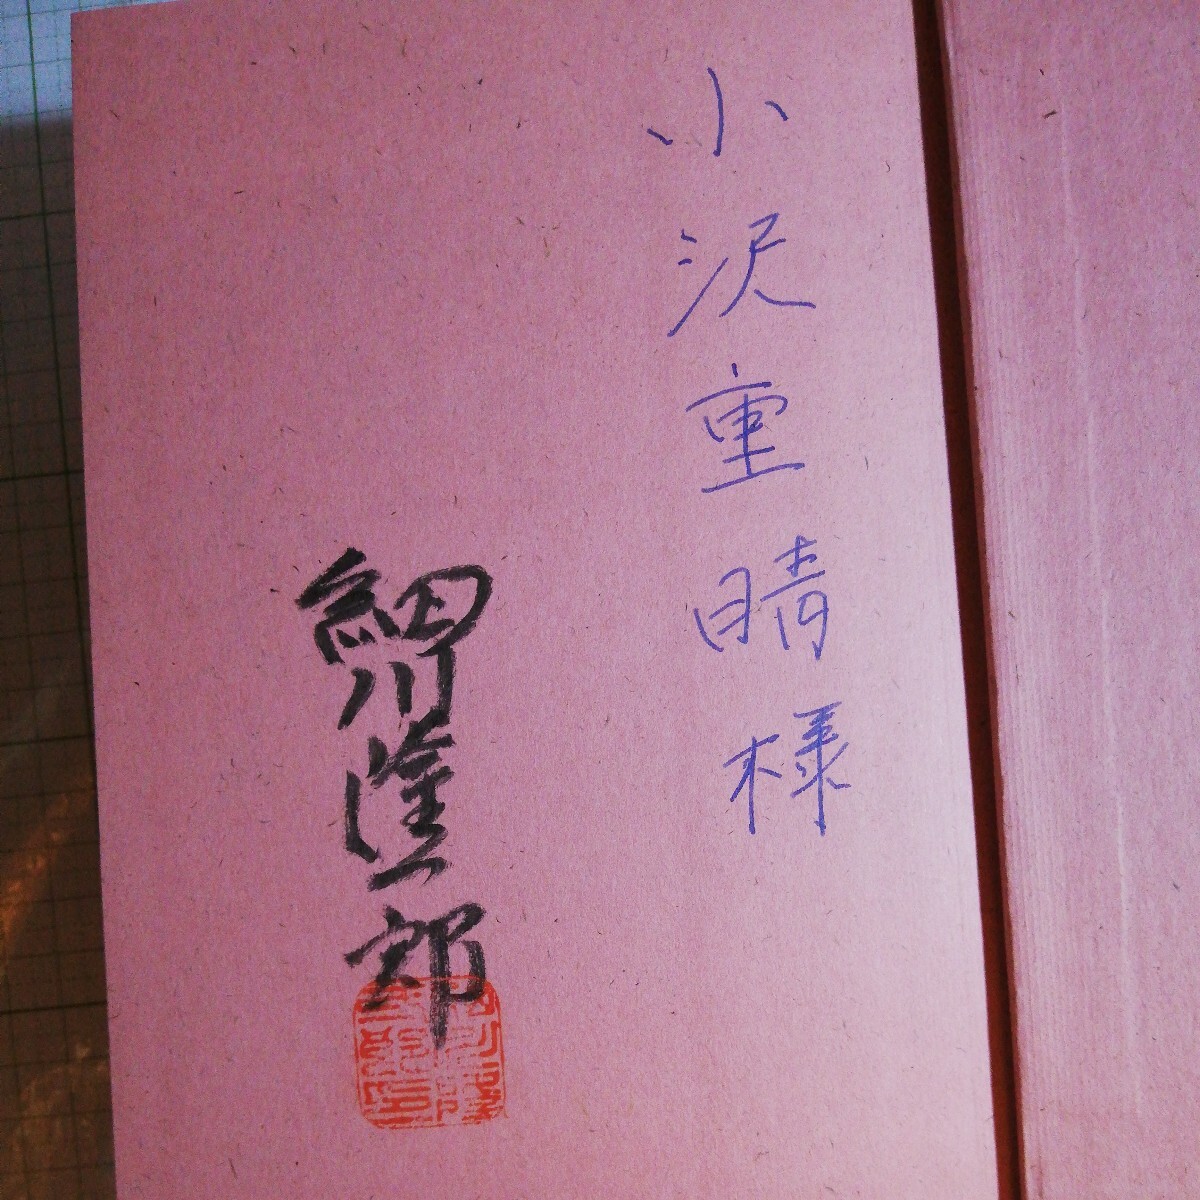 小沢重晴様
細川隆一郎